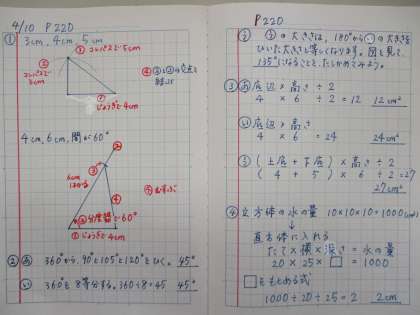 4/10 P220
① 3cm, 4cm, 5cm
② コンパスで5cm
コンパスで3cm
④ ②と③の交点と結ぶ
① じょうぎで4cm
4cm, 6cm, 間が60°
③
6cm はかる
④
⑤ むすぶ
② 分度器で60°
① じょうぎで4cm
② あ 360°から、90°と105°と120°をひく。 45°
い 360°を8等分する。360÷8=45 45°
P220
う うの大きさは、180°からいの大きさを
ひいた大きさと等しくなります。図を見て、
135°になることを、たしかめてみよう。
③ あ 底辺×高さ÷2
4 × 6 ÷2=12 12cm²
い 底辺×高さ
4 × 6 = 24 24cm²
う (上底+下底)×高さ÷2
(4 + 5) × 6 ÷2=27
27cm²
④ 立方体の水の量 10×10×10=1000(cm³)
↓
直方体に入れる
たて×横×深さ=水の量
20×25×□=1000
□をもとめる式
1000÷20÷25=2 2cm